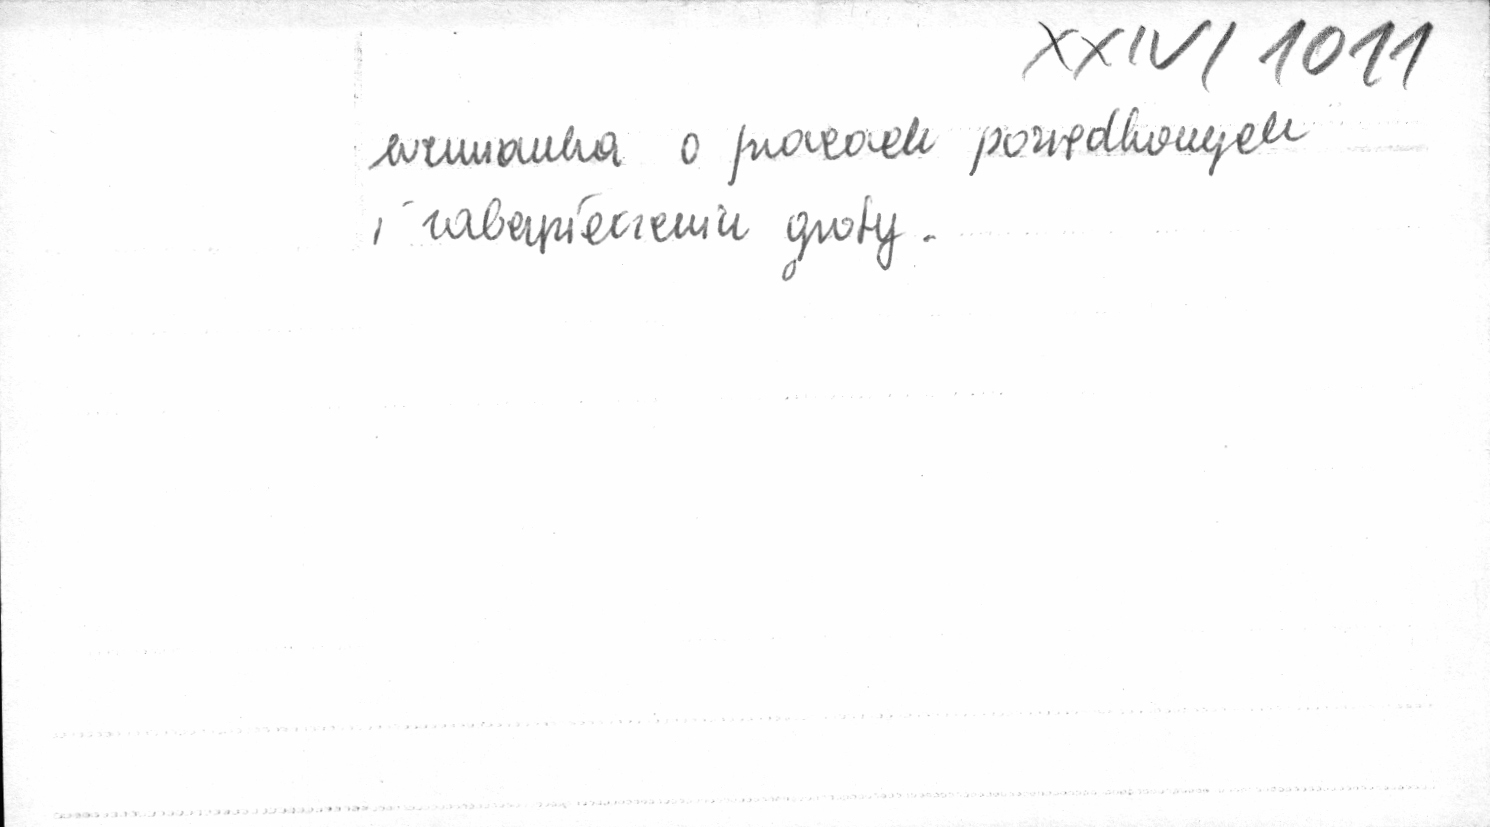 XXIV/1011
wzmianka o pracach porządkowych
i zabezpieczeniu groty.